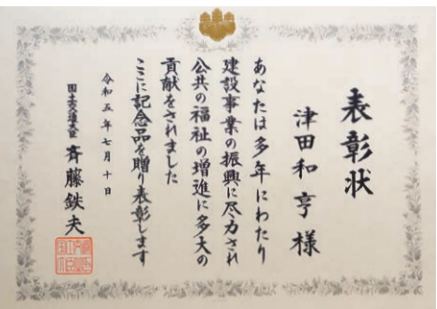 表彰状
津田和亨様
あなたは多年にわたり
建設事業の振興に尽力され
公共の福祉の増進に多大の
貢献をされました
ここに記念品を贈り表彰します
令和五年七月十日
国土交通大臣 斉藤鉄夫